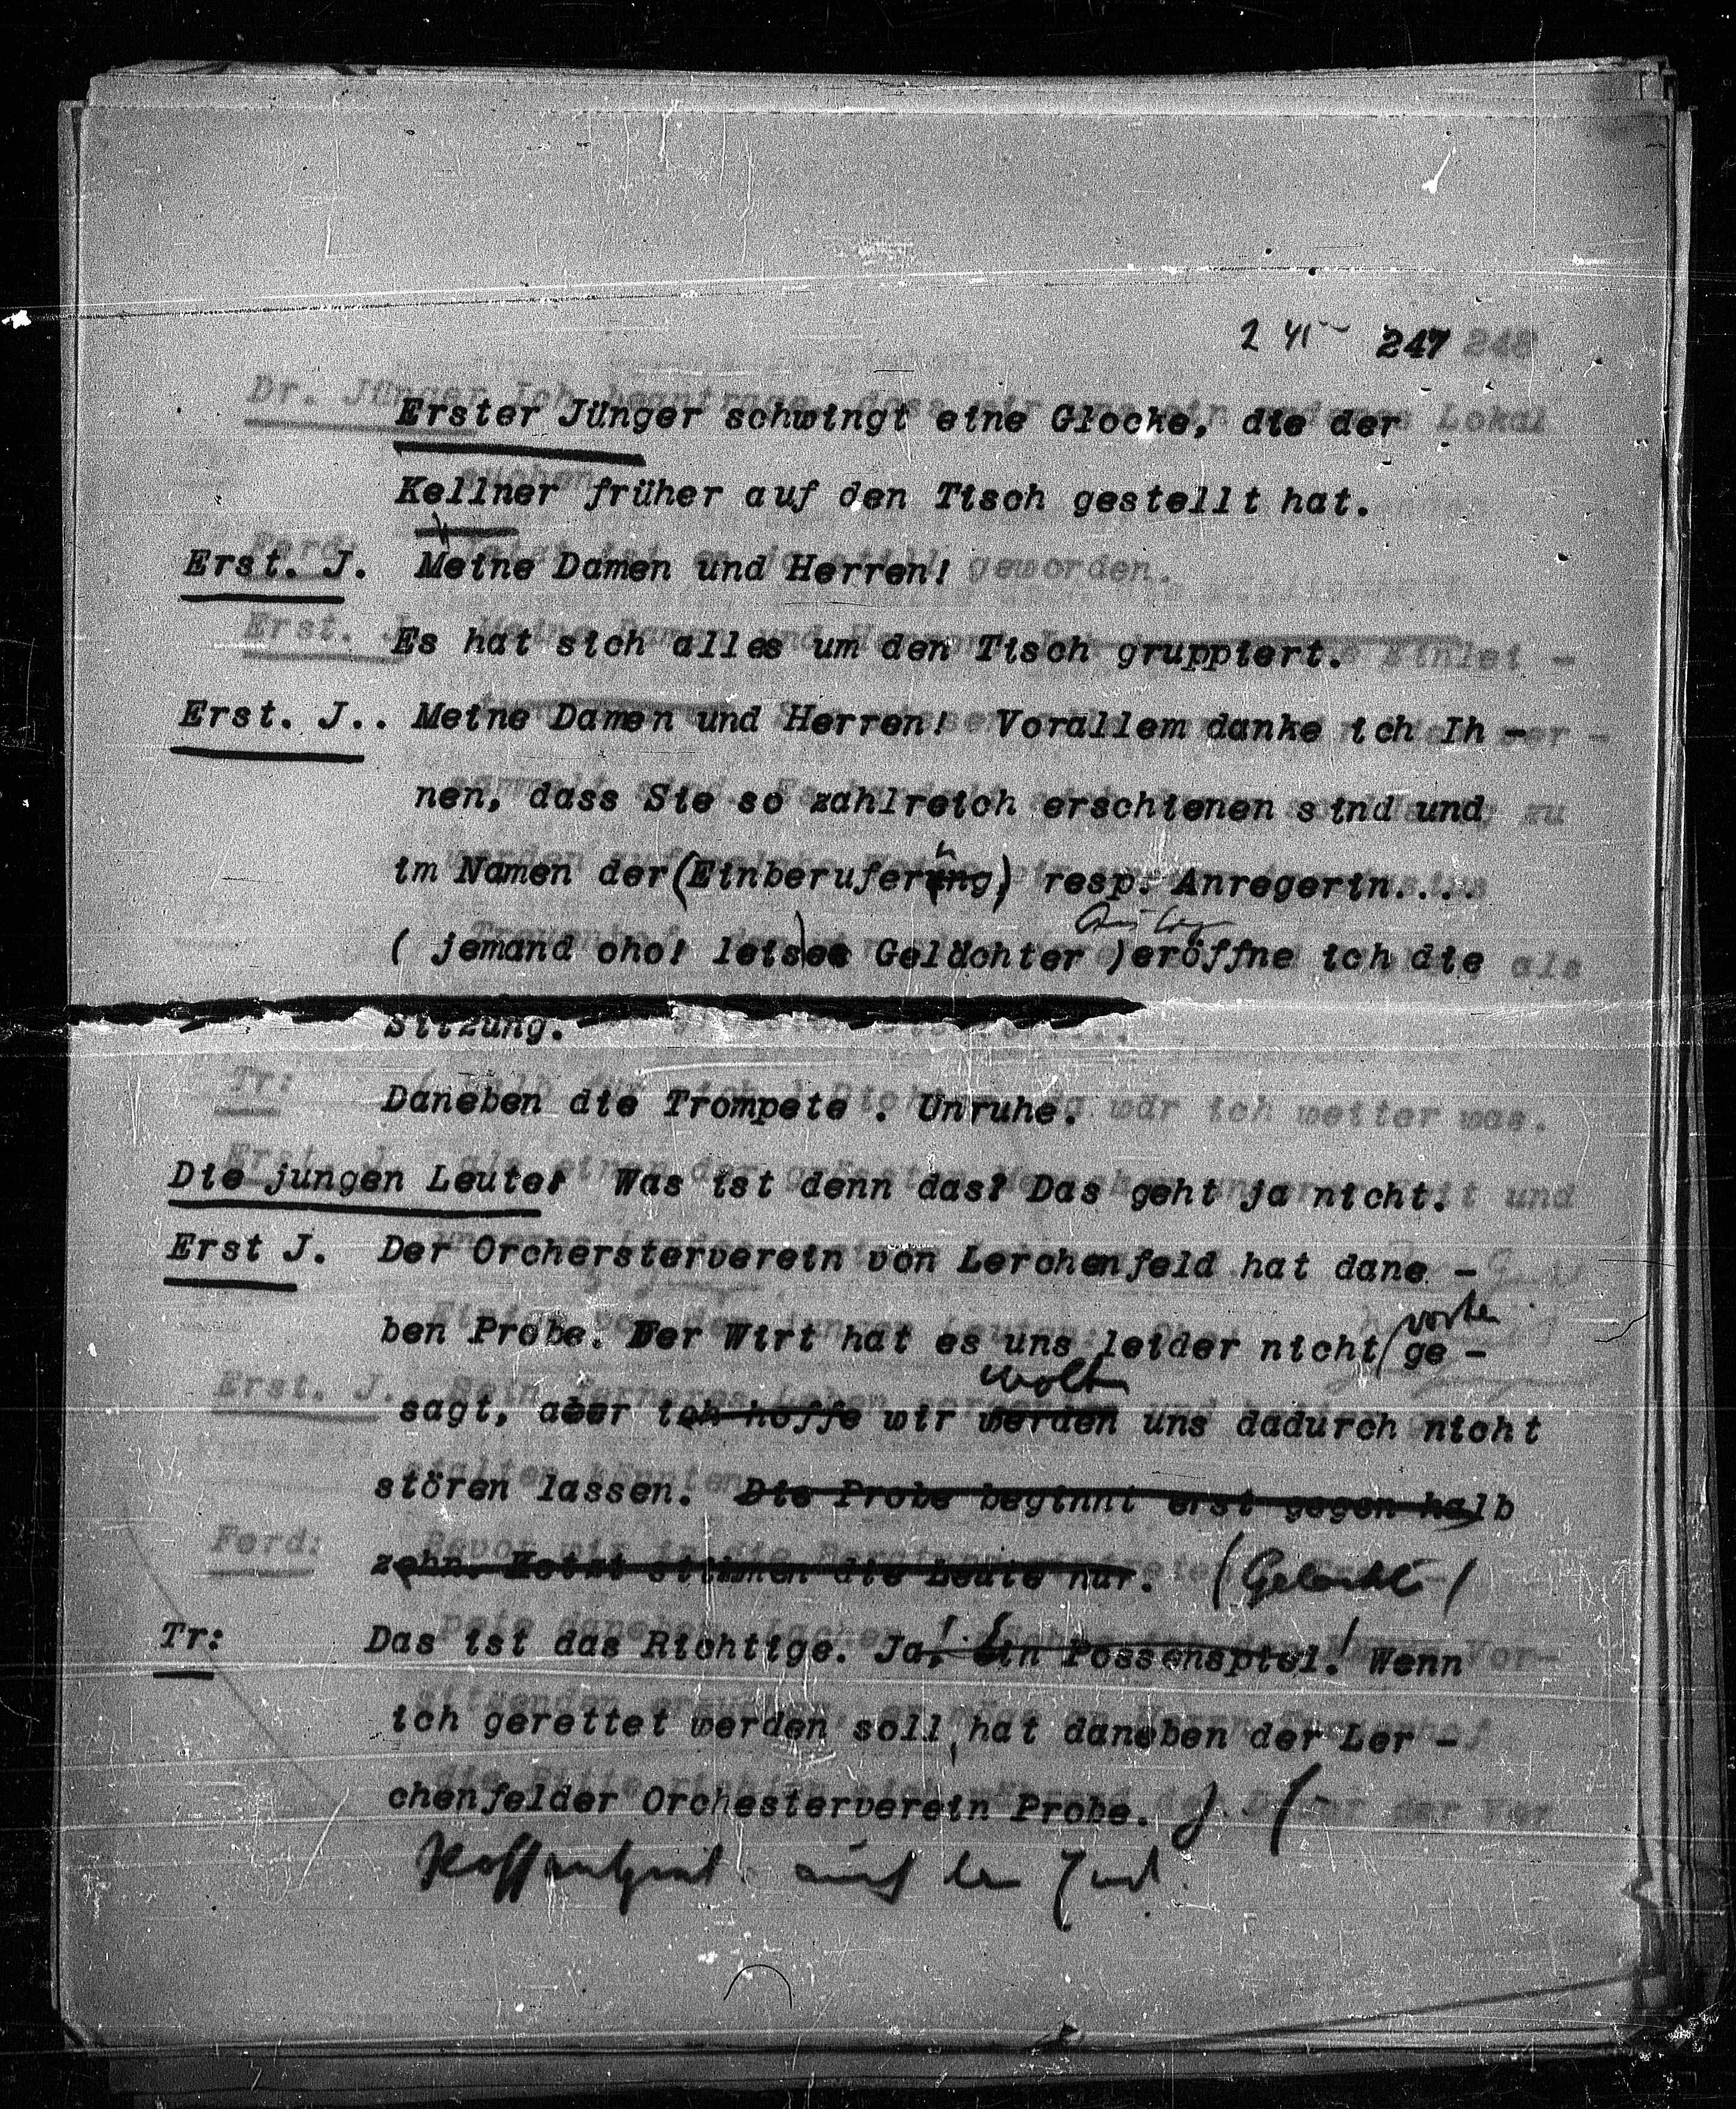 247 248
Erster Jünger schwingt eine Glocke, die der
Kellner früher auf den Tisch gestellt hat.
Erst. J. Meine Damen und Herren!
Es hat sich alles um den Tisch gruppiert.
Erst. J.. Meine Damen und Herren! Vorallem danke ich Ih -
nen, dass Sie so zahlreich erschienen sind und
im Namen der (Einberuferung) resp. Anregerin....
( jemand oho! leises Gelächter ) eröffne ich die
Sitzung.
Daneben die Trompete . Unruhe.
Die jungen Leute: Was ist denn das? Das geht ja nicht.
Erst J. Der Orchersterverein von Lerchenfeld hat dane -
vorher
ben Probe. Der Wirt hat es uns leider nicht ge -
wollen
sagt, aber ich hoffe wir werden uns dadurch nicht
stören lassen. Die Probe beginnt erst gegen halb
zehn. Jetzt stimmen die Leute nur. (Gelächter)
Tr: Das ist das Richtige. Ja, ein Possenspiel! Wenn
ich gerettet werden soll, hat daneben der Ler -
chenfelder Orchesterverein Probe.